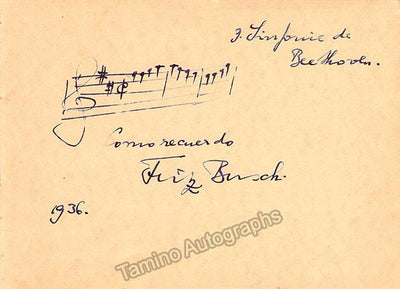 9. Sinfonie de
Beethoven.
Como recuerdo
Fritz Busch.
1936.
Tamino Autographs